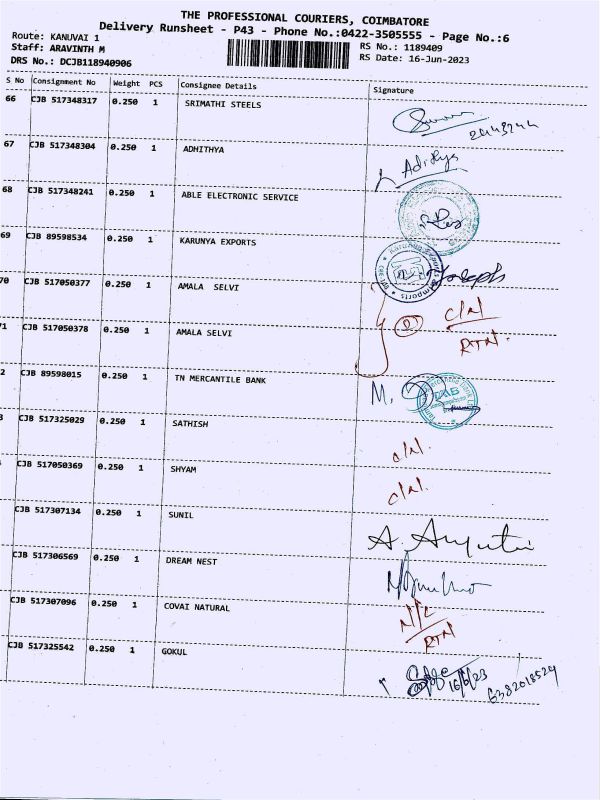 THE PROFESSIONAL COURIERS, COIMBATORE
Delivery Runsheet - P43 - Phone No.:0422-3505555 - Page No.:6
Route: KANUVAI 1
Staff: ARAVINTH M
DRS No.: DCJB118940906
RS No.: 1189409
RS Date: 16-Jun-2023
S No Consignment No Weight PCS Consignee Details Signature
66 CJB 517348317 0.250 1 SRIMATHI STEELS
67 CJB 517348304 0.250 1 ADHITHYA Adithya
68 CJB 517348241 0.250 1 ABLE ELECTRONIC SERVICE
69 CJB 89598534 0.250 1 KARUNYA EXPORTS Joseph
70 CJB 517050377 0.250 1 AMALA SELVI
71 CJB 517050378 0.250 1 AMALA SELVI
RTN.
2 CJB 89598015 0.250 1 TN MERCANTILE BANK M.
3 CJB 517325029 0.250 1 SATHISH
CJB 517050369 0.250 1 SHYAM
CJB 517307134 0.250 1 SUNIL
CJB 517306569 0.250 1 DREAM NEST
CJB 517307096 0.250 1 COVAI NATURAL
RTN
CJB 517325542 0.250 1 GOKUL
16/6/23 6382018524